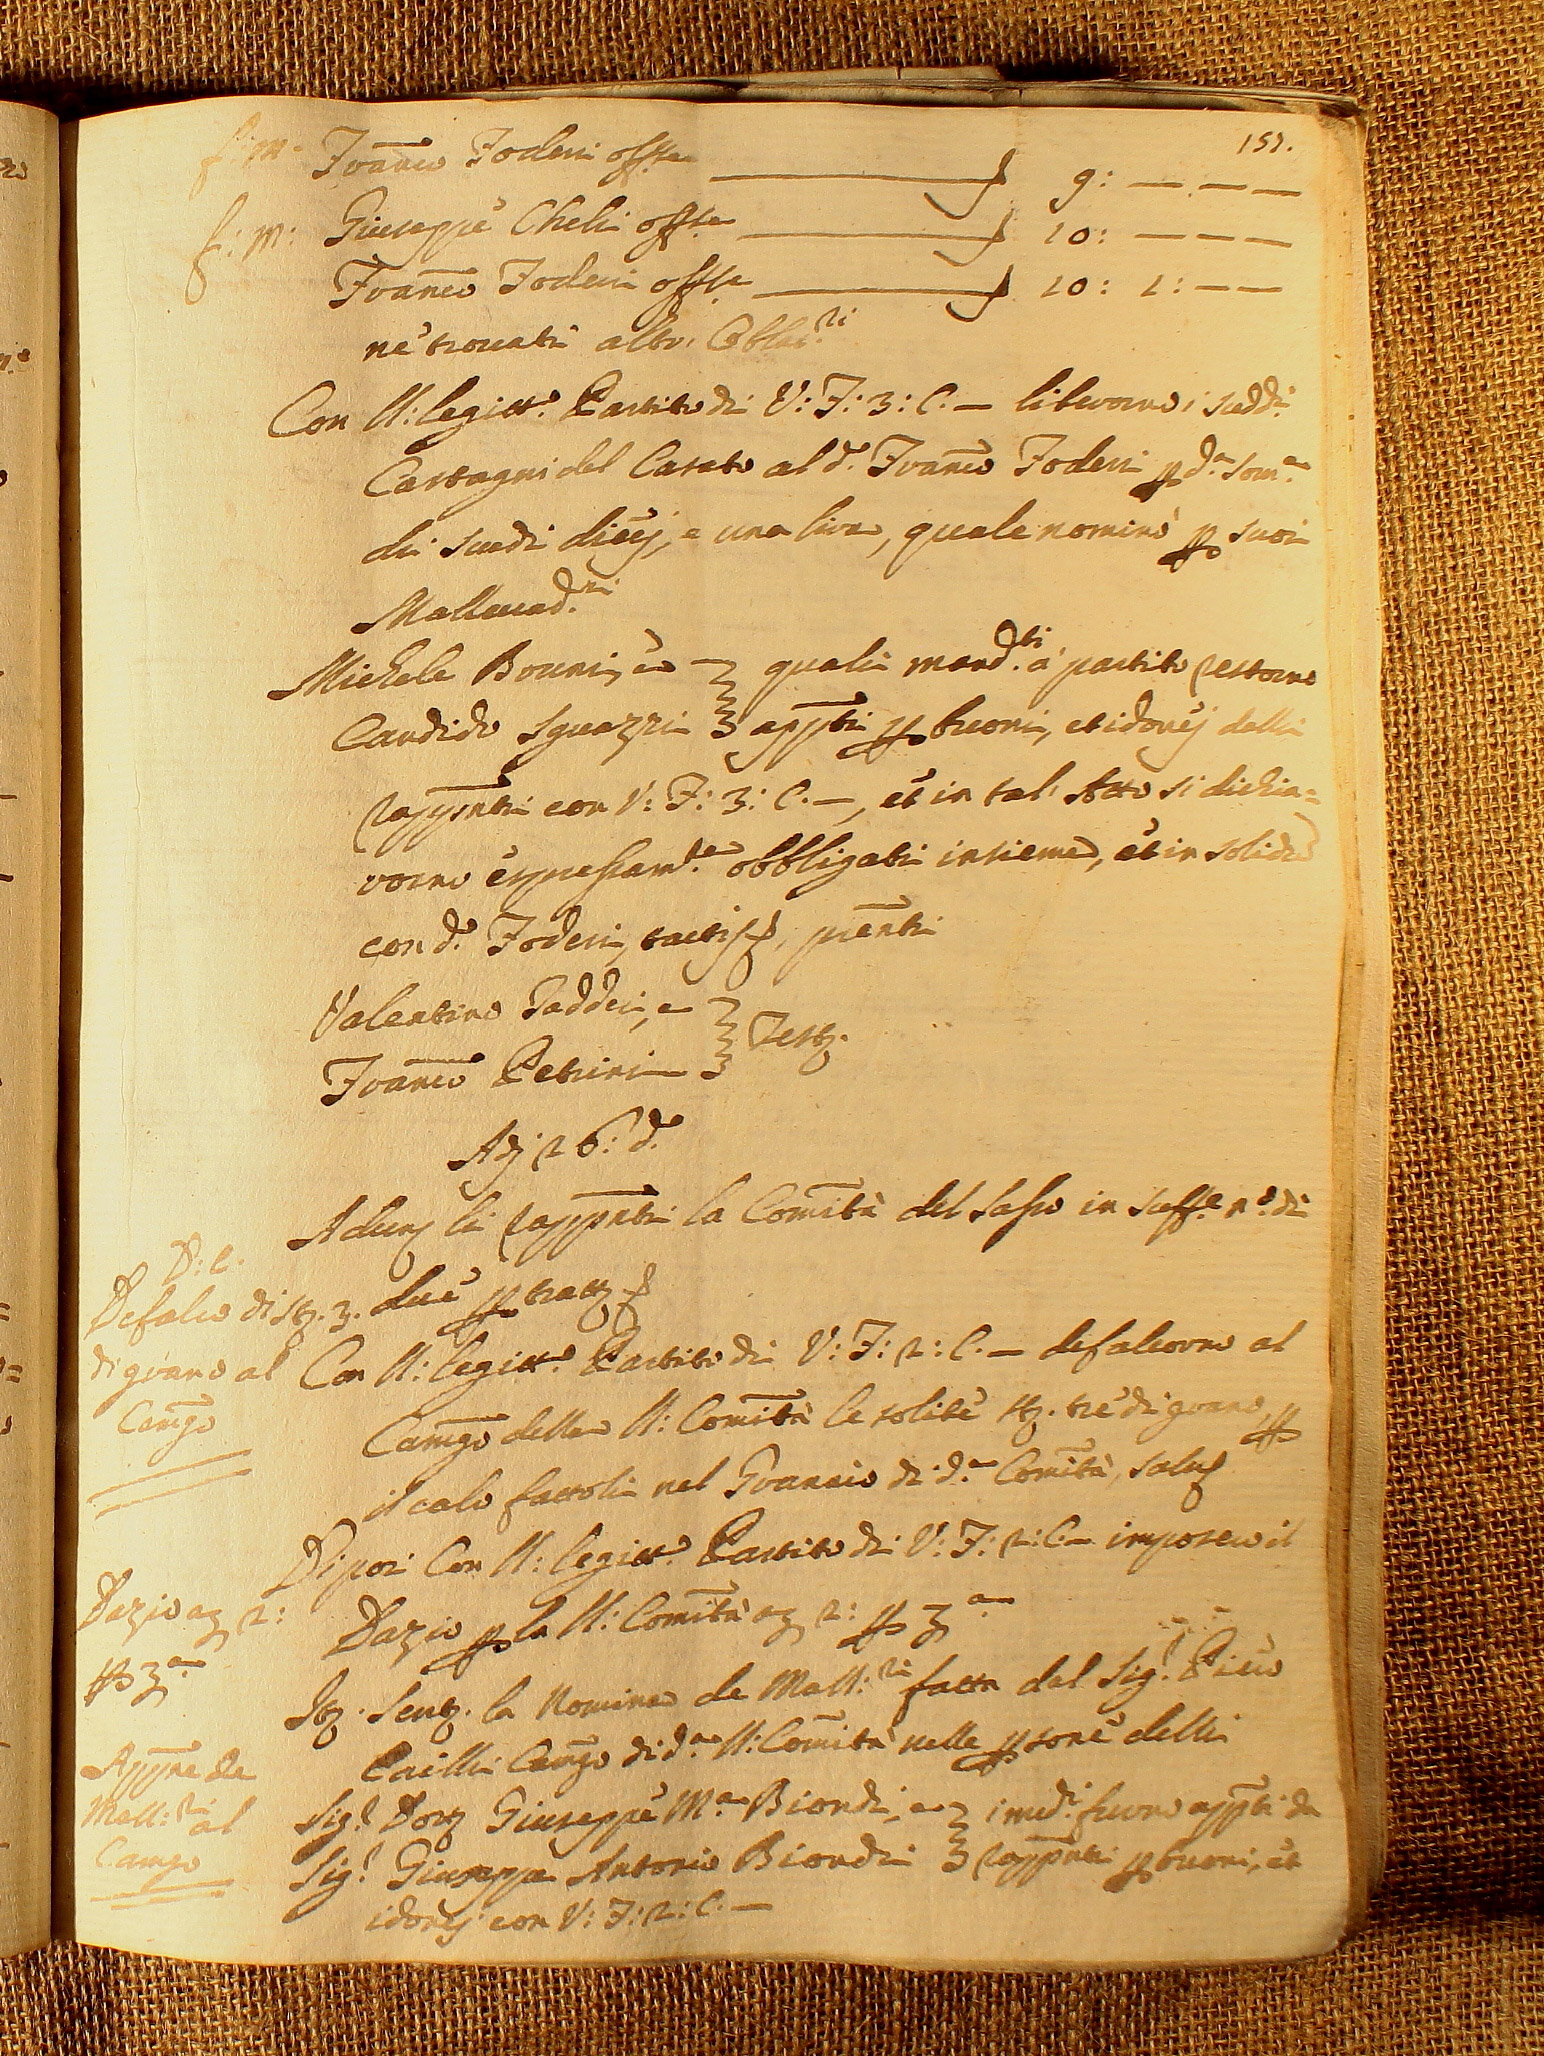 151.
f: m: Franco Foderi offre ∫ 9: — — —
f: m: Giuseppe Cheli offre ∫ 10: — — —
Franco Foderi offre ∫ 10: 1: — —
nè trovati altri Oblat.ri
Con U: legitt.o Partito di V: F: 3: C. — liberorno i sudd.i
Castagni del Casato al d.o Franco Foderi p d.a som.a
di scudi diecj, e una lira, quale nominò p suoi
Mallevad.ri
Michele Bourij, e quali mand.ti à partito restorno
Candido Sguazzi appti p buoni, et idonej dalli
rappnti con V: F: 3: C. —, et in tal Atto si dichia=
rorno espressam.te obbligati insieme, et in solido
con d.o Foderi, pienti
Valentino Taddei, e
Franco Petrini Test.
Adj 26: d.o
Adun. li rappnti la Comità del Sasso in suff.e n.o di
due p tratt.
D: C.
Defalco di st. 3.
di grano al
Camgo
Con U: legitt.o Partito di V: F: 2: C. — defalcorno al
Camgo della U: Comità le solite st. tre di grano, p
il calo fattoli nel Granaio di d.a Comità, salv.
Dipoi Con U: legitt.o Partito di V: F: 2: C. — imposero il
Dazio p la U: Comità a 2: p 3.a
Dazio a 2:
p 3.a
It. Sent. la Nomina de Mall.ri fatta dal Sig.r Piero
Cailli Camgo di d.a U: Comità nelle psone delli
Appne de
Mall.ri al
Camgo
Sig.r Dott. Giuseppe M.a Biondi, e i med.i furno appti da
Sig.r Giuseppe Antonio Biondi rappnti p buoni, et
idonej con V: F: 2: C. —